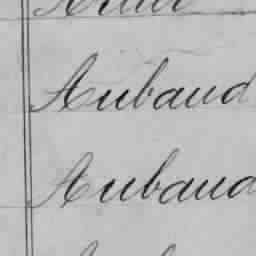 Aubaud
Aubaud